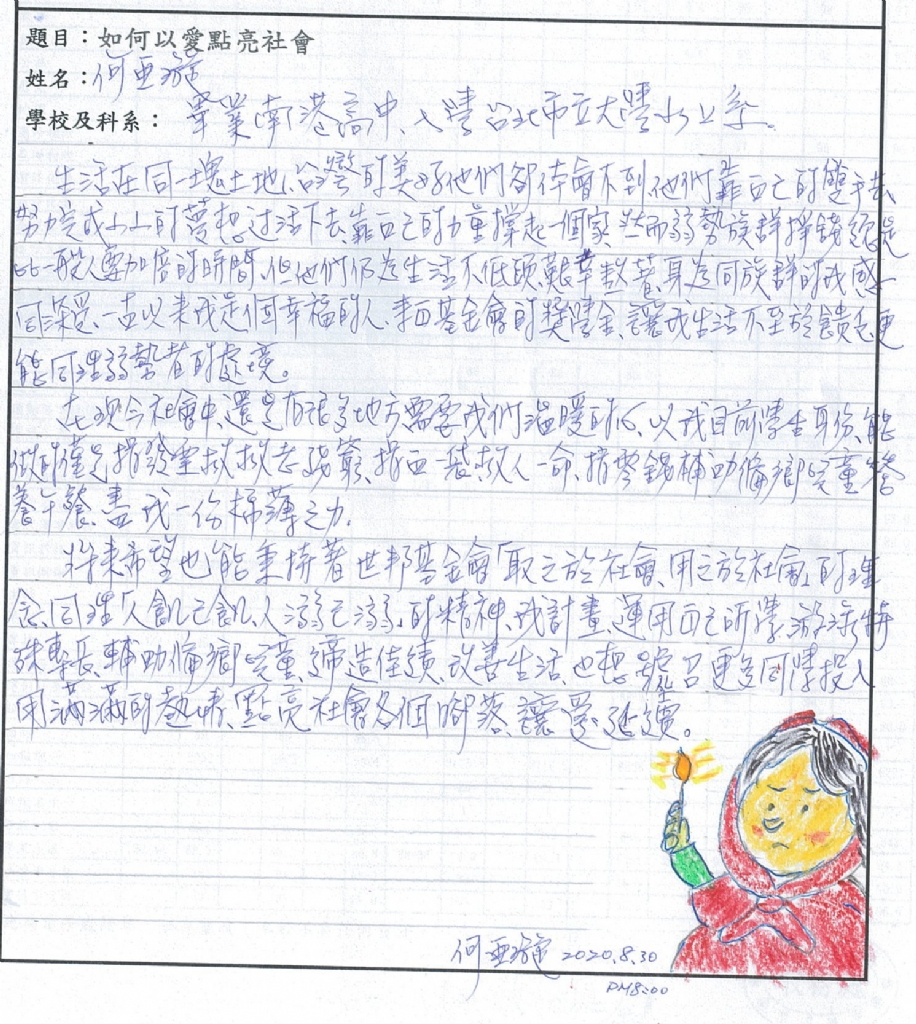 題目：如何以愛點亮社會
姓名：何亞璇
學校及科系：畢業南港高中、入學台北市立大學水上系。
生活在同一塊土地、台灣的美好他們卻体會不到,他們靠自己的雙手去
努力完成小小的夢想過活下去,靠自己的力量撐起一個家,然而弱勢族群掙錢總是
比一般人要加倍的時間、但他們仍為生活不低頭,艱辛熬著,身為同族群的我感
同深受、一直以來我是個幸福的人、基金會的獎學金、讓我生活不至於匱乏,更
能同理弱勢者的處境。
在現今社會中,還是有很多地方需要我們溫暖的心、以我目前學生身份、能
做的僅是捐發票救救老殘窮、捐血一袋救人一命、捐零錢補助偏鄉兒童營
養午餐、盡我一份棉薄之力.
將來希望也能秉持著世邦基金會「取之於社會、用之於社會」的理
念、同理「人飢己飢、人溺己溺」的精神、我計畫、運用自己所學、游泳特
殊專長、輔助偏鄉兒童、締造佳績、改善生活、也想號召更多同情投入
用滿滿的熱情、點亮社會各個腳落、讓愛延續。
何亞璇 2020.8.30
PM8:00